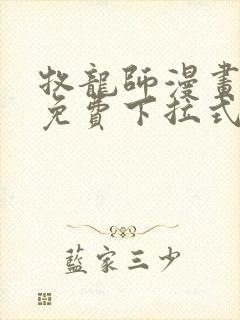 牧龍師漫畫
免費下拉式
藍家三少